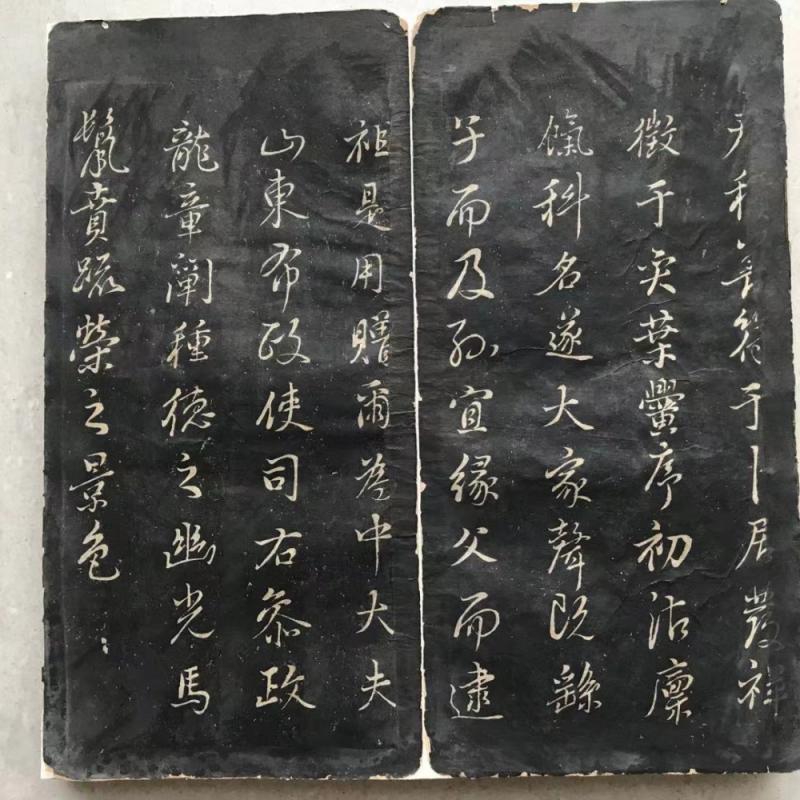 于卜居發祥
徵于奕葉黌序初沾廩
餼科名遂大家聲既繇
子而及孫宜緣父而逮
祖是用贈爾為中大夫
山東布政使司右叅政
龍章闡種德之幽光馬
鬣賁疏榮之景色